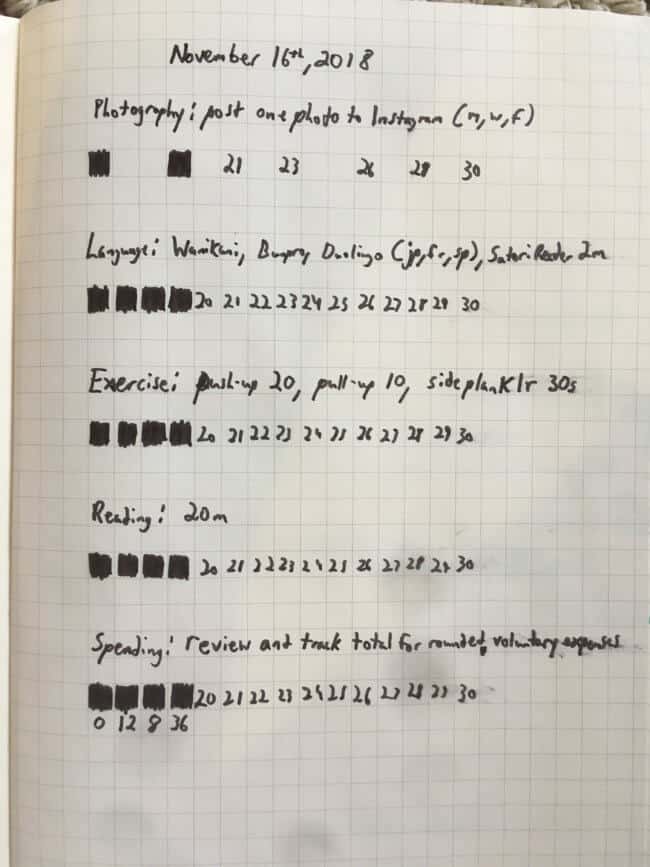 November 16th, 2018
Photography: post one photo to Instagram (m, w, f)
21 23 26 28 30
Language: Wanikani, Bunpro, Duolingo (jp, fr, sp), Satori Reader 2m
20 21 22 23 24 25 26 27 28 29 30
Exercise: push-up 20, pull-up 10, side plank lr 30s
20 21 22 23 24 25 26 27 28 29 30
Reading: 20m
20 21 22 23 24 25 26 27 28 29 30
Spending: review and track total for rounded, voluntary expenses
20 21 22 23 24 25 26 27 28 29 30
0 12 8 36